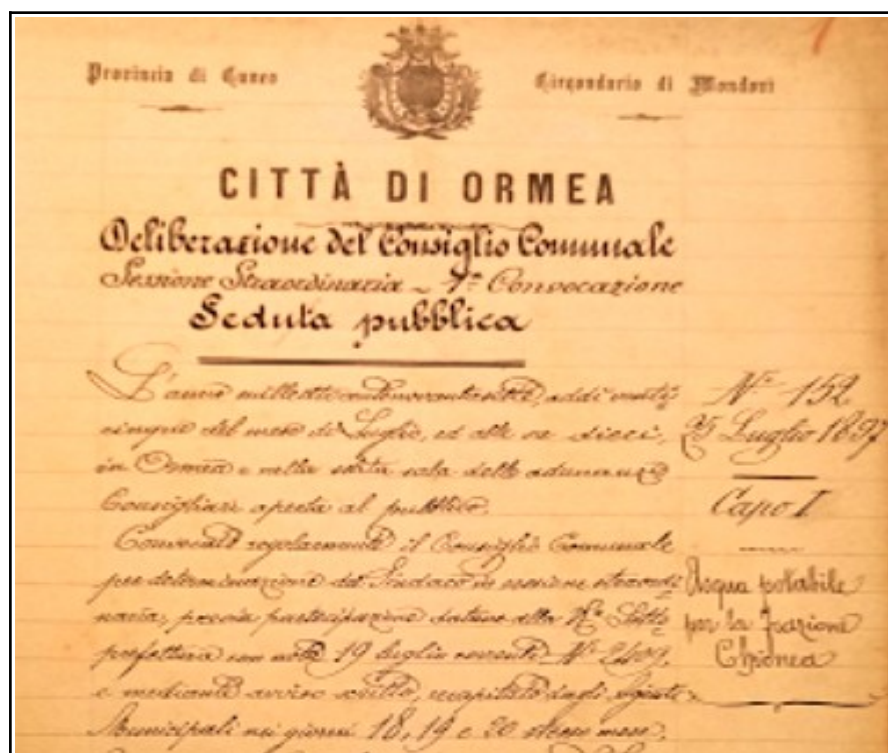 Provincia di Cuneo
Circondario di Mondovì
CITTÀ DI ORMEA
Deliberazione del Consiglio Comunale
Sessione Straordinaria - 1ª Convocazione
Seduta pubblica
L'anno milleottocentonovantasette, addì venti
cinque del mese di Luglio, ed alle ore dieci,
in Ormea e nella solita sala delle adunanze
Consigliari aperta al pubblico.
Convocato regolarmente il Consiglio Comunale
per determinazione del Sindaco in sessione straordi
naria, previa partecipazione datane alla Rª Sotto
prefettura con nota 19 luglio corrente Nº 2409,
e mediante avviso scritto, recapitato dagli Agenti
Municipali nei giorni 18, 19 e 20 stesso mese,
Nº 152
25 Luglio 1897
Capo I
Acqua potabile
per la frazione
Chionea